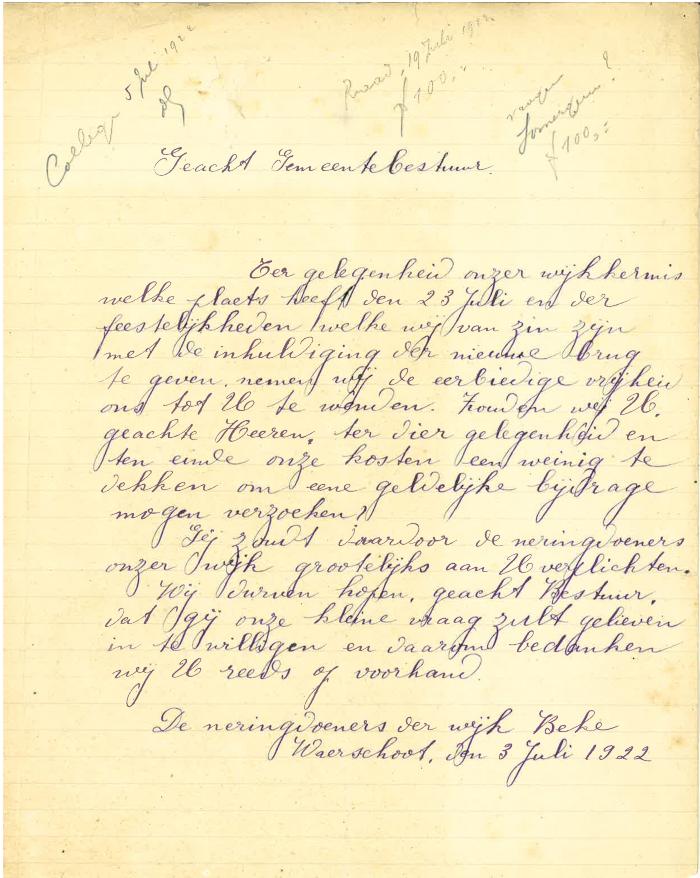 College 5 Juli 1922
Raad 19 Juli 1922
f 100,-
vragen
Somergem?
f 100,-
Geacht Gemeentebestuur.
Ter gelegenheid onzer wijkkermis
welke plaets heeft den 23 Juli en der
feestelijkheden welke wij van zin zijn
met de inhuldiging der nieuwe brug
te geven, nemen wij de eerbiedige vrijheid
ons tot U te wenden. Zouden wij U,
geachte Heeren, ter dier gelegenheid en
ten einde onze kosten een weinig te
dekken om eene geldelijke bijdrage
mogen verzoeken?
Gij zoudt daardoor de neringdoeners
onzer wijk grootelijks aan U verplichten.
Wij durven hopen, geacht Bestuur,
dat gij onze kleine vraag zult gelieven
in te willigen en daarom bedanken
wij U reeds op voorhand.
De neringdoeners der wijk Beke
Waerschoot, den 3 Juli 1922